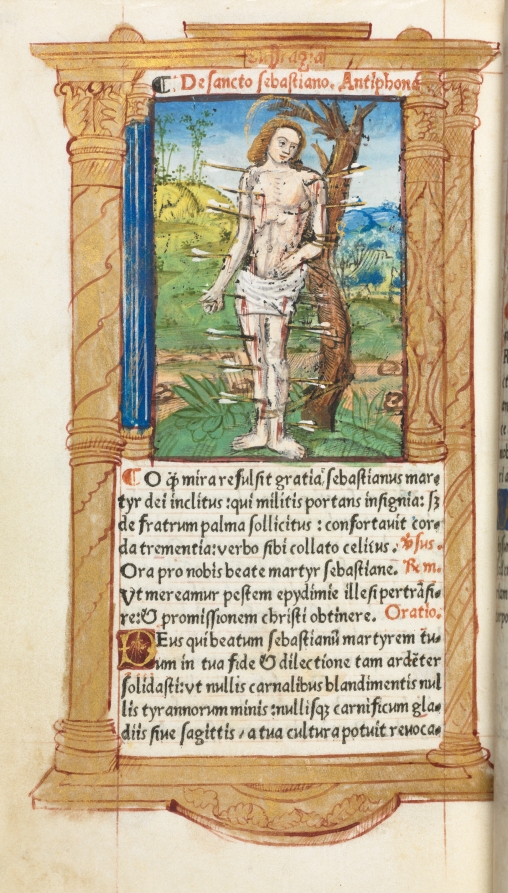 Suffragia
¶ De sancto sebastiano. Antiphona
¶ O q̄ȝ mira refulsit gratia sebastianus mar-
tyr dei inclitus: qui militis portans insignia: sȝ
de fratrum palma sollicitus: confortauit cor-
da trementia: verbo sibi collato celitus. v̄sus.
Ora pro nobis beate martyr sebastiane. Re m.
Vt mereamur pestem epydimie illesi pertrāsi-
re: & promissionem christi obtinere. Oratio.
DEus qui beatum sebastianū martyrem tu-
um in tua fide & dilectione tam ardēter
solidasti: vt nullis carnalibus blandimentis nul
lis tyrannorum minis: nullisqȝ carnificum gla-
diis siue sagittis / a tua cultura potuit reuoca-